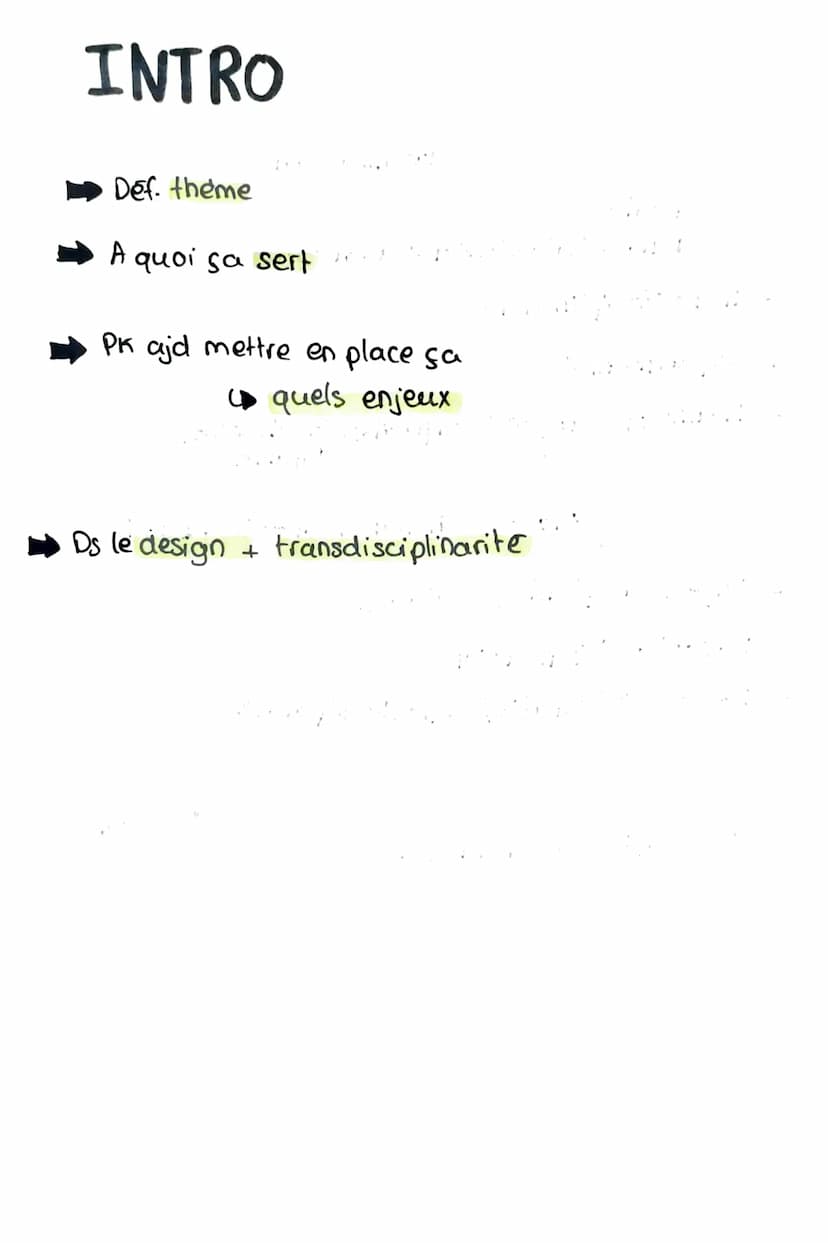 INTRO
Def. thème
A quoi ça sert
Pk ajd mettre en place ça
quels enjeux
Ds le design + transdisciplinarite